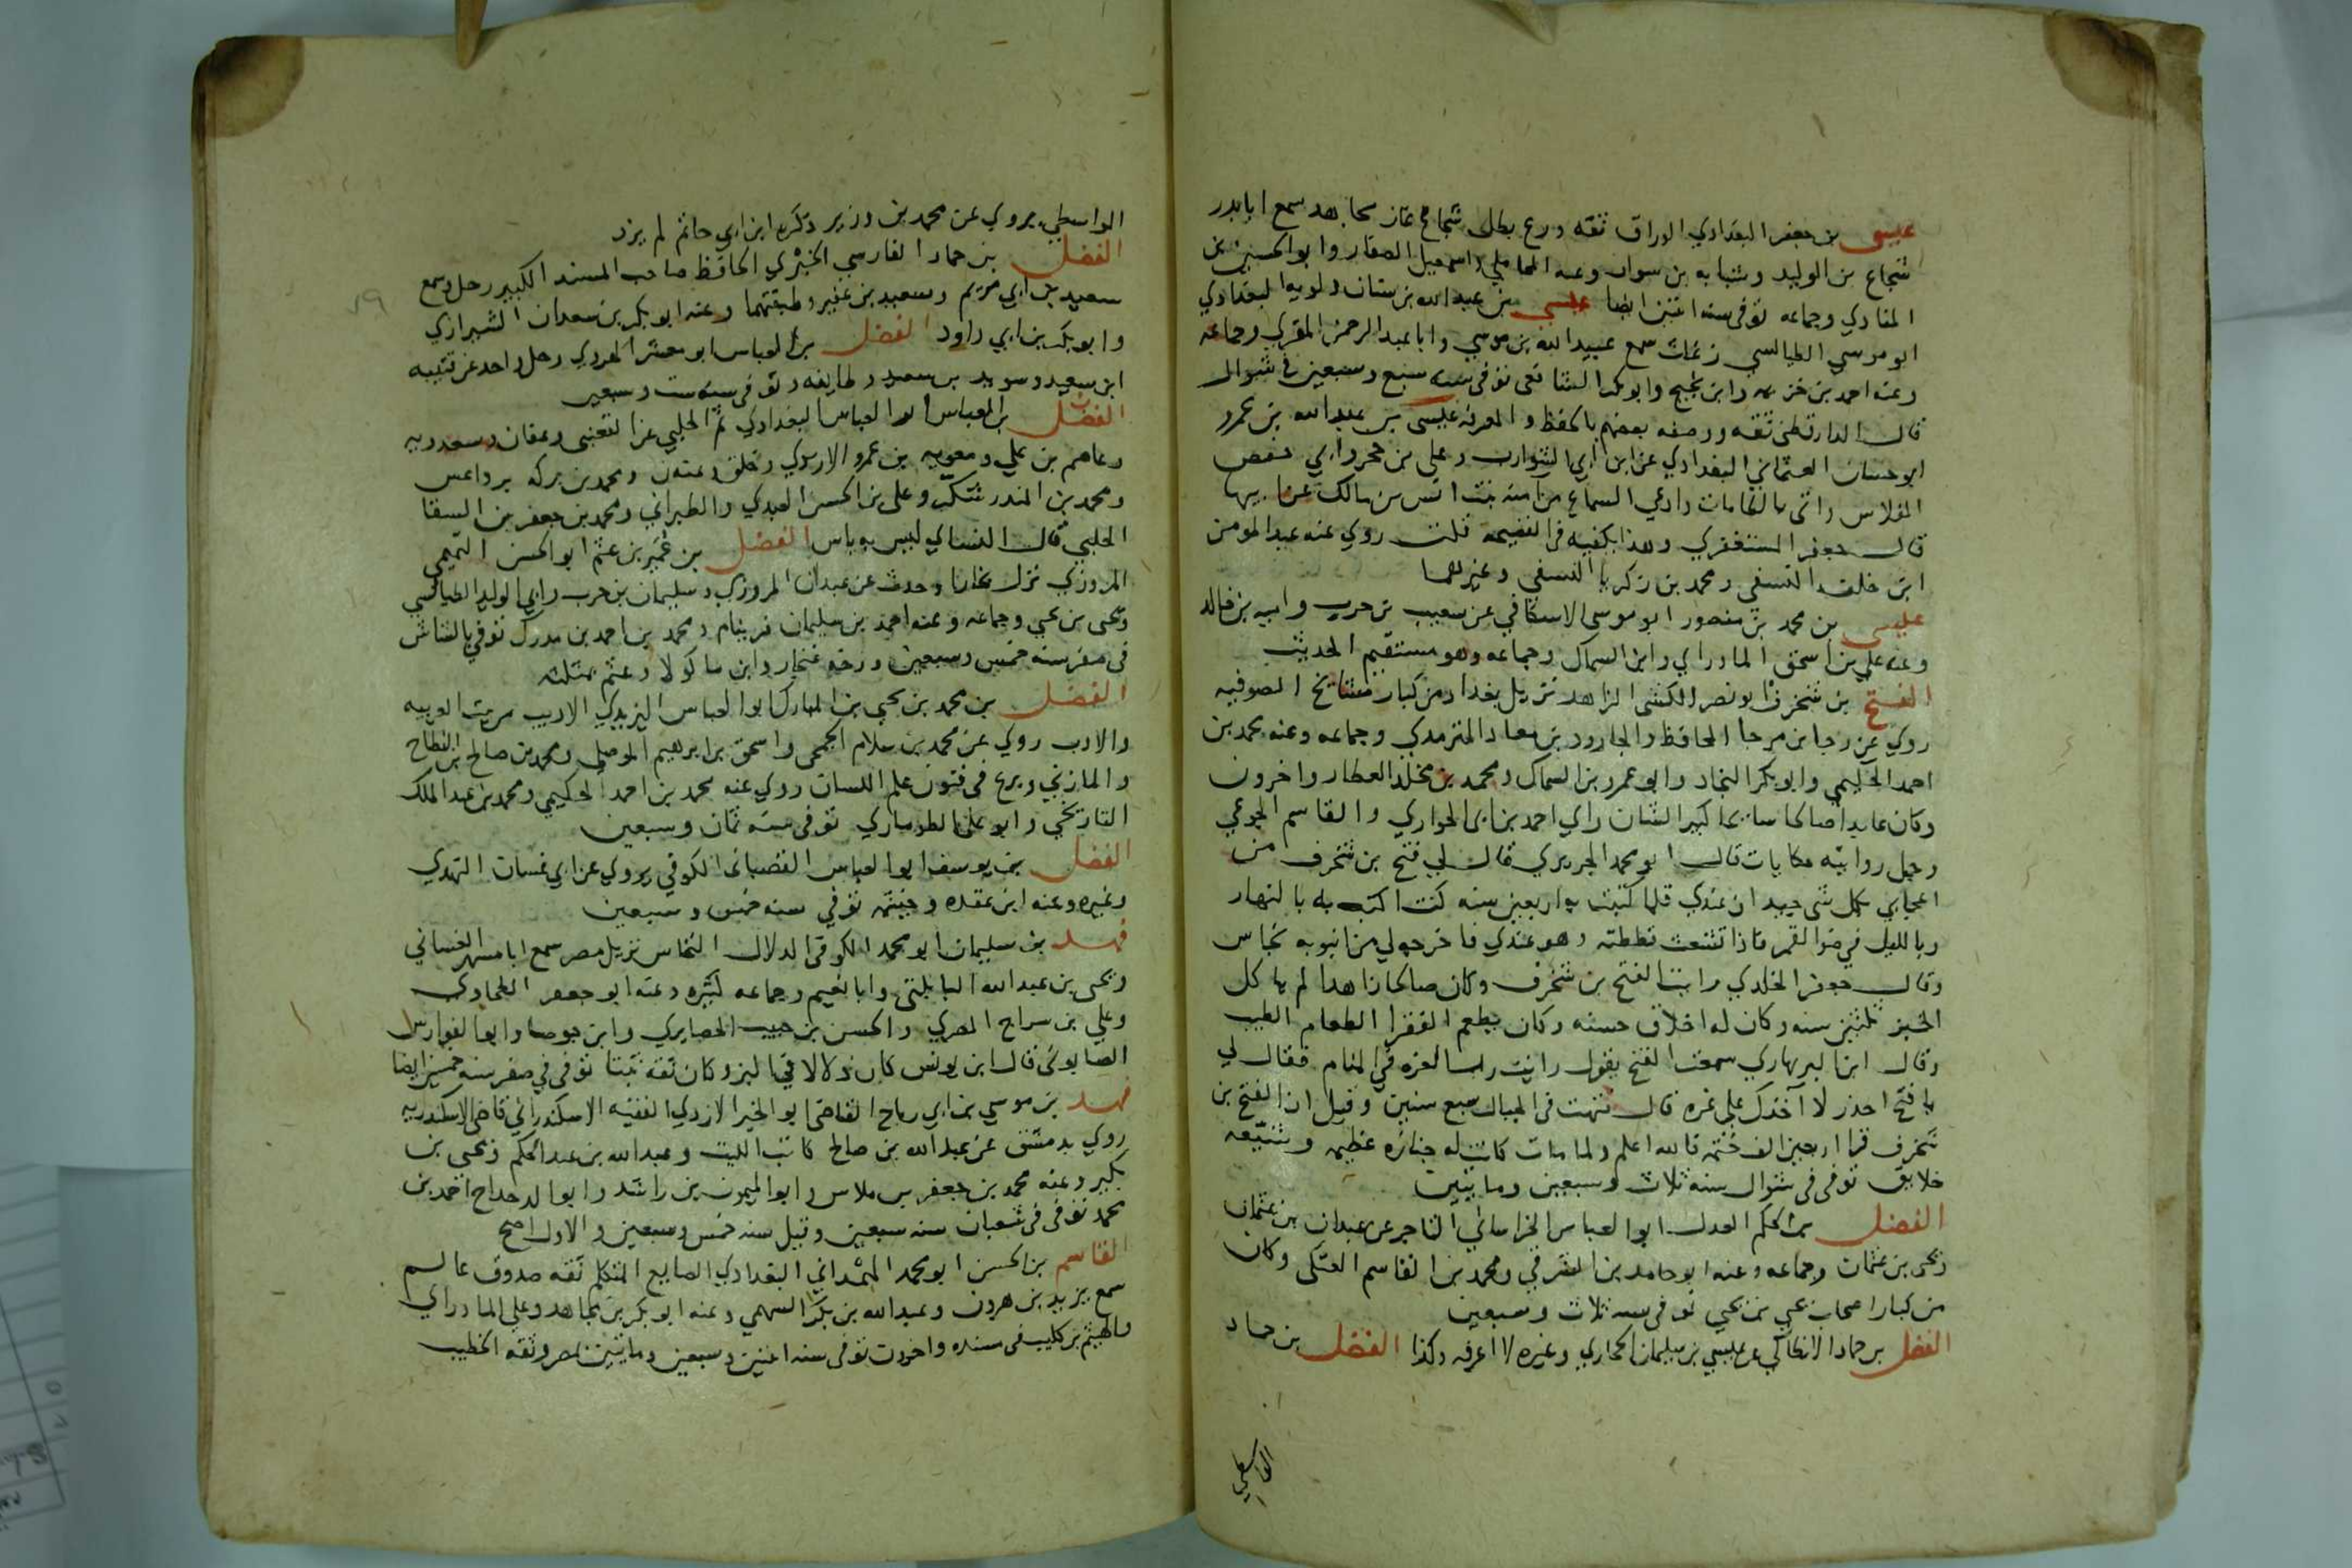 عيسى بن جعفر البغدادي الوراق ثقه ورع بطل شجاع غاز مجاهد سمع ابا بدر
شجاع بن الوليد وشبابه بن سوار وعنه المحاملي واسمعيل الصفار وابو الحسين بن
المنادي وجماعه توفى سنه اثنين ايضا عيسى بن عبد الله بن سنان دلويه البغدادي
ابو موسي الطيالسي زغاث سمع عبيد الله بن موسي وابا عبد الرحمن المقري وجماعه
وعنه احمد بن خزيمه وابن نجيح وابو بكر الشافعى توفى سنه سبع وسبعين في شوال
قال الدارقطنى ثقه ووصفه بعضهم بالحفظ والمعرفه عيسى بن عبد الله بن عمرو
ابو حسان العثماني البغدادي عن ابن ابي الشوارب وعلى بن حجر وابي حفص
الفلاس واتى بالطامات وادعي السماع من امنه بنت انس بن مالك عن ابيها
قال جعفر المستغفري وهذا يكفيه في الفضيحه قلت روي عنه عبد المومن
ابن خلف النسفي ومحمد بن زكريا النسفي وغيرهما
عيسى بن محمد بن منصور ابو موسى الاسكافي عن شعيب بن حرب واميه بن خالد
وعنه علي بن اسحق المادرايي وابن السماك وجماعه وهو مستقيم الحديث
الفتح بن شخرف ابو نصر الكشى الزاهد نزيل بغداد من كبار مشايخ الصوفيه
روي عن رجا بن مرجا الحافظ والجارود بن معاد الترمدي وجماعه وعنه محمد بن
احمد الحليمي وابو بكر النجاد وابو عمرو بن السماك ومحمد بن مخلد العطار واخرون
وكان عابدا صالحا سايحا كبير الشان راي احمد بن ابى الحواري والقاسم الجوعي
وجل روايته حكايات قال ابو محمد الجريري قال لي فتح بن شخرف من
اعجابي بكل شي جيد ان عندي قلما كتبت به اربعين سنه كنت اكتب به بالنهار
وبالليل في ضوا القمر فاذا تشعث قططته وهو عندي فاخرجه لي من انبوبه نحاس
وقال جعفر الخلدي رايت الفتح بن شخرف وكان صالحا زاهدا لم ياكل
الخبز ثلثين سنه وكان له اخلاق حسنه وكان يطعم الفقرا الطعام الطيب
وقال ابن البربهاري سمعت الفتح يقول رايت رب العزه في المنام فقال لي
يا فتح احذر لا آخذك على غره قال فتهت في الجبال سبع سنين وقيل ان الفتح بن
شخرف قرا اربعين الف ختمه فالله اعلم ولما مات كانت له جنازه عظيمه وشيعه
خلايق توفى فى شوال سنه ثلاث وسبعين ومايتين
الفضل بن الحكم العدل ابو العباس الخراساني التاجر عن عبدان بن عثمان
ويحى بن عثمان وجماعه وعنه ابو حامد بن الشرقي ومحمد بن القاسم العتكي وكان
من كبار اصحاب يحي بن يحي توفى سنه ثلاث وسبعين
الفضل بن حماد الانطاكي عن عيسي بن سليمان الحجازي وغيره لا اعرفه وكذا الفضل بن حماد
الواسطي
الواسطي يروي عن محمد بن وزير ذكره ابن ابي حاتم لم يزد
الفضل بن حماد الفارسي الخبري الحافظ صاحب المسند الكبير رحل وسمع
سعيد بن ابي مريم وسعيد بن عفير وطبقتهما وعنه ابو بكر بن سعدان الشيرازي
وابو بكر بن ابي داود الفضل بن العباس ابو معشر الهروي رحل واخذ عن قتيبه
ابن سعيد وسويد بن سعيد وطايفه وتوفى سنه ست وسبعين
الفضل بن العباس ابو العباس البغدادي ثم الحلبي عن القعنبى وعفان وسعدويه
وعاصم بن علي ومعويه بن عمرو الازدي وخلق وعنه ن ومحمد بن بركه برداعس
ومحمد بن المندر شكر وعلى بن الحسن العبدي والطبراني ومحمد بن جعفر بن السقا
الحلبي قال النساي ليس به باس الفضل بن عمير بن عثم ابو الحسن التميمي
المروزي نزل بخارا وحدث عن عبدان المروزي وسليمان بن حرب وابي الوليد الطيالسي
ويحى بن يحي وجماعه وعنه احمد بن سليمان ومحمد بن احمد بن مدرك توفي بالشاش
فى صفر سنه خمس وسبعين ورخه غنجار وابن ماكولا وعثم بمثلثه
الفضل بن محمد بن يحي بن المبارك ابو العباس اليزيدي الاديب من بيت العربيه
والادب روي عن محمد بن سلام الجمحى واسحق بن ابرهيم الموصلي ومحمد بن صالح بن النطاح
والمازني وبرع فى فنون علم اللسان روي عنه محمد بن احمد الحكيمي ومحمد بن عبد الملك
التاريخي وابو علي الطوماري توفى سنه ثمان وسبعين
الفضل بن يوسف ابو العباس القصباني الكوفي يروي عن ابي غسان النهدي
وغيره وعنه ابن عقده وخيثمه توفي سنه خمس وسبعين
فهد بن سليمان ابو محمد الكوفي الدلال النخاس نزيل مصر سمع ابا مسهر الغساني
ويحى بن عبد الله البابلتى وابا نعيم وجماعه كثيره وعنه ابو جعفر الطحاوي
وعلي بن سراج المصري والحسن بن حبيب الحصايري وابن جوصا وابو الفوارس
الصابوني قال ابن يونس كان دلالا في البز وكان ثقه ثبتا توفى في صفر سنه خمس ايضا
فهد بن موسي بن ابي رباح القاضى ابو الخير الازدي الفقيه الاسكندراني قاضى الاسكندريه
روي بدمشق عن عبد الله بن صالح كاتب الليث وعبد الله بن عبد الحكم ويحى بن
بكير وعنه محمد بن جعفر بن ملاس وابو الميمون بن راشد وابو الدحداح احمد بن
محمد توفى فى شعبان سنه سبعين وقيل سنه خمس وسبعين والاول اصح
القاسم بن الحسن ابو محمد الهمداني البغدادي الصايغ المتكلم ثقه صدوق عالم
سمع يزيد بن هرون وعبد الله بن بكر السهمي وعنه ابو بكر بن مجاهد وعلي المادرايي
والهيثم بن كليب فى مسنده واخرون توفى سنه اثنين وسبعين ومايتين بمصر وثقه الخطيب